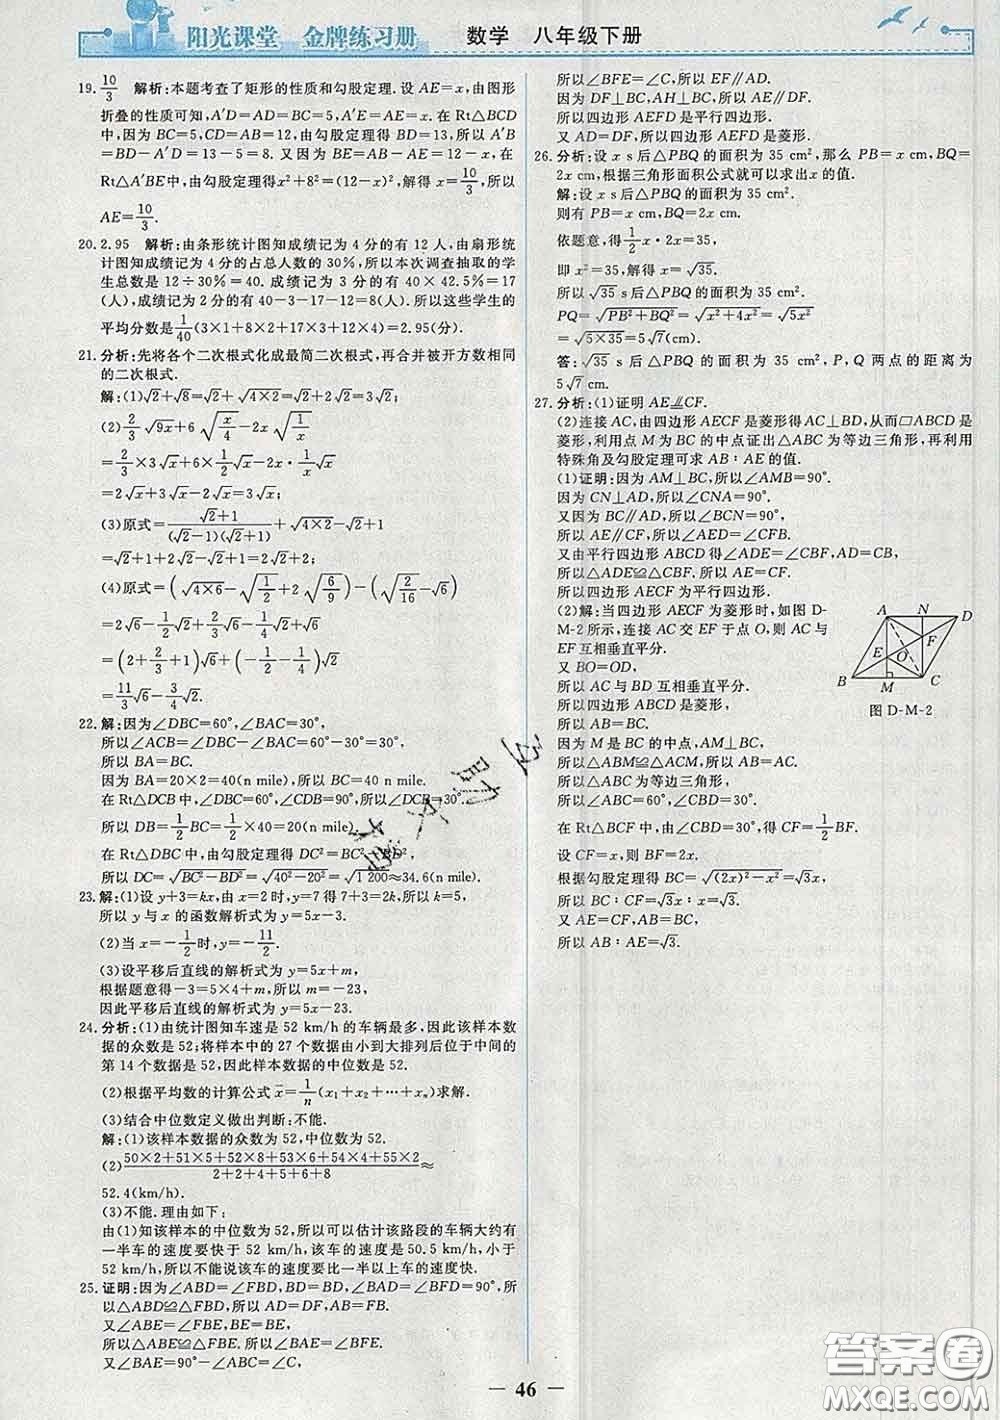 阳光课堂 金牌练习册 数学 八年级下册
19. 10/3 解析:本题考查了矩形的性质和勾股定理.设 AE=x,由图形
折叠的性质可知,A′D=AD=BC=5,A′E=AE=x.在 Rt△BCD
中,因为 BC=5,CD=AB=12,由勾股定理得 BD=13,所以 A′B
=BD-A′D=13-5=8.又因为 BE=AB-AE=12-x,在
Rt△A′BE中,由勾股定理得x²+8²=(12-x)²,解得 x=10/3,所以
AE=10/3.
20. 2.95 解析:由条形统计图知成绩记为 4 分的有 12 人,由扇形统
计图知成绩记为 4 分的占总人数的30%,所以本次调查抽取的学
生总数是 12÷30%=40.成绩记为 3 分的有 40×42.5%=17
(人),成绩记为 2 分的有 40-3-17-12=8(人).所以这些学生的
平均分数是1/40(3×1+8×2+17×3+12×4)=2.95(分).
21. 分析:先将各个二次根式化成最简二次根式,再合并被开方数相同
的二次根式.
解:(1)√2+√8=√2+√(4×2)=√2+2√2=3√2;
(2)2/3 √(9x)+6√(x/4)-2x√(1/x)
=2/3×3√x+6×1/2√x-2x·1/x√x
=2√x+3√x-2√x=3√x;
(3)原式=(√2+1)/((√2-1)(√2+1))+√(4×2)-√2+1
=√2+1+2√2-√2+1=2√2+2;
(4)原式=(√(4×6)-√(1/2)+2√(6/9))-(√(2/16)-√6)
=2√6-1/2√2+2/3√6-1/4√2+√6
=(2+2/3+1)√6+(-1/2-1/4)√2
=11/3√6-3/4√2.
22. 解:因为∠DBC=60°,∠BAC=30°,
所以∠ACB=∠DBC-∠BAC=60°-30°=30°,
所以 BA=BC.
因为 BA=20×2=40(n mile),所以 BC=40(n mile).
在 Rt△DCB 中,∠DBC=60°,∠BDC=90°,所以∠DCB=30°.
所以 DB=1/2BC=1/2×40=20(n mile).
在 Rt△DBC 中,由勾股定理得 DC²=BC²-BD²,
所以 DC=√(BC²-BD²)=√(40²-20²)=√1 200≈34.6(n mile).
23. 解:(1)设 y+3=kx,由 x=2时,y=7 得 7+3=2k,所以 k=5,
所以 y 与 x 的函数解析式为 y=5x-3.
(2)当 x=-1/2时,y=-11/2.
(3)设平移后直线的解析式为 y=5x+m,
根据题意得-3=5×4+m,所以 m=-23,
因此平移后直线的解析式为 y=5x-23.
24. 分析:(1)由统计图知车速是 52 km/h 的车辆最多,因此该样本数
据的众数是 52;将样本中的 27 个数据由小到大排列后位于中间的
第 14 个数据是 52,因此样本数据的中位数是 52.
(2)根据平均数的计算公式 x̄=1/n(x₁+x₂+…+xₙ)求解.
(3)结合中位数定义做出判断:不能.
解:(1)该样本数据的众数为 52,中位数为 52.
(2)(50×2+51×5+52×8+53×6+54×4+55×2)/(2+2+4+5+6+8)≈
52.4(km/h).
(3)不能.理由如下:
由(1)知该样本的中位数为 52,所以可以估计该路段的车辆大约有
一半车的速度要快于 52 km/h,该车的速度是 50.5 km/h,小于
52 km/h,所以不能说该车的速度要比一半以上车的速度快.
25. 证明:因为∠ABD=∠FBD,BD=BD,∠BAD=∠BFD=90°,所
以△ABD≌△FBD,所以 AD=DF,AB=FB.
又∠ABE=∠FBE,BE=BE,
所以△ABE≌△FBE,所以∠BAE=∠BFE.
又∠BAE+∠BAH=90°=∠BAH+∠C,
所以∠BFE=∠C,所以 EF∥AD.
因为 DF⊥BC,AH⊥BC,所以 AE∥DF.
所以四边形 AEFD 是平行四边形.
又 AD=DF,所以四边形 AEFD 是菱形.
26. 分析:设 x s 后△PBQ 的面积为 35 cm²,那么 PB=x cm,BQ=
2x cm,根据三角形面积公式就可以求出 x 的值.
解:设 x s 后△PBQ 的面积为 35 cm².
则有 PB=x cm,BQ=2x cm.
依题意,得1/2x·2x=35,
即 x²=35,解得 x=√35.
所以√35 s 后△PBQ 的面积为 35 cm².
PQ=√(PB²+BQ²)=√(x²+4x²)=√(5x²)
=√(5×35)=5√7(cm).
答:√35 s 后△PBQ 的面积为 35 cm²,P,Q 两点的距离为
5√7 cm.
27. 分析:(1)证明 AE∥CF.
(2)连接 AC,由四边形 AECF 是菱形得 AC⊥BD,从而▱ABCD 是
菱形,利用点 M 为 BC 的中点证出△ABC 为等边三角形,再利用
特殊角及勾股定理可求 AB∶AE 的值.
(1)证明:因为 AM⊥BC,所以∠AMB=90°.
因为 CN⊥AD,所以∠CNA=90°.
又因为 BC∥AD,所以∠BCN=90°.
所以 AE∥CF,所以∠AED=∠CFB.
又由平行四边形 ABCD 得∠ADE=∠CBF,AD=CB,
所以△ADE≌△CBF.所以 AE=CF.
所以四边形 AECF 为平行四边形.
(2)解:当四边形 AECF 为菱形时,如图 D-
M-2 所示,连接 AC 交 EF 于点 O,则 AC 与
EF 互相垂直平分.
又 BO=OD,
所以 AC 与 BD 互相垂直平分.
所以四边形 ABCD 为菱形,
所以 AB=BC.
因为 M 是 BC 的中点,AM⊥BC,
所以△ABM≌△ACM,所以 AB=AC.
所以△ABC 为等边三角形,
所以∠ABC=60°,∠CBD=30°.
在 Rt△BCF 中,由∠CBD=30°,得 CF=1/2BF.
设 CF=x,则 BF=2x.
根据勾股定理得 BC=√((2x)²-x²)=√3x,
所以 BC∶CF=√3x∶x=√3.
又 AE=CF,AB=BC,
所以 AB∶AE=√3.
A N D
E O F
B M C
图 D-M-2
— 46 —
答案圈
MXQE.COM